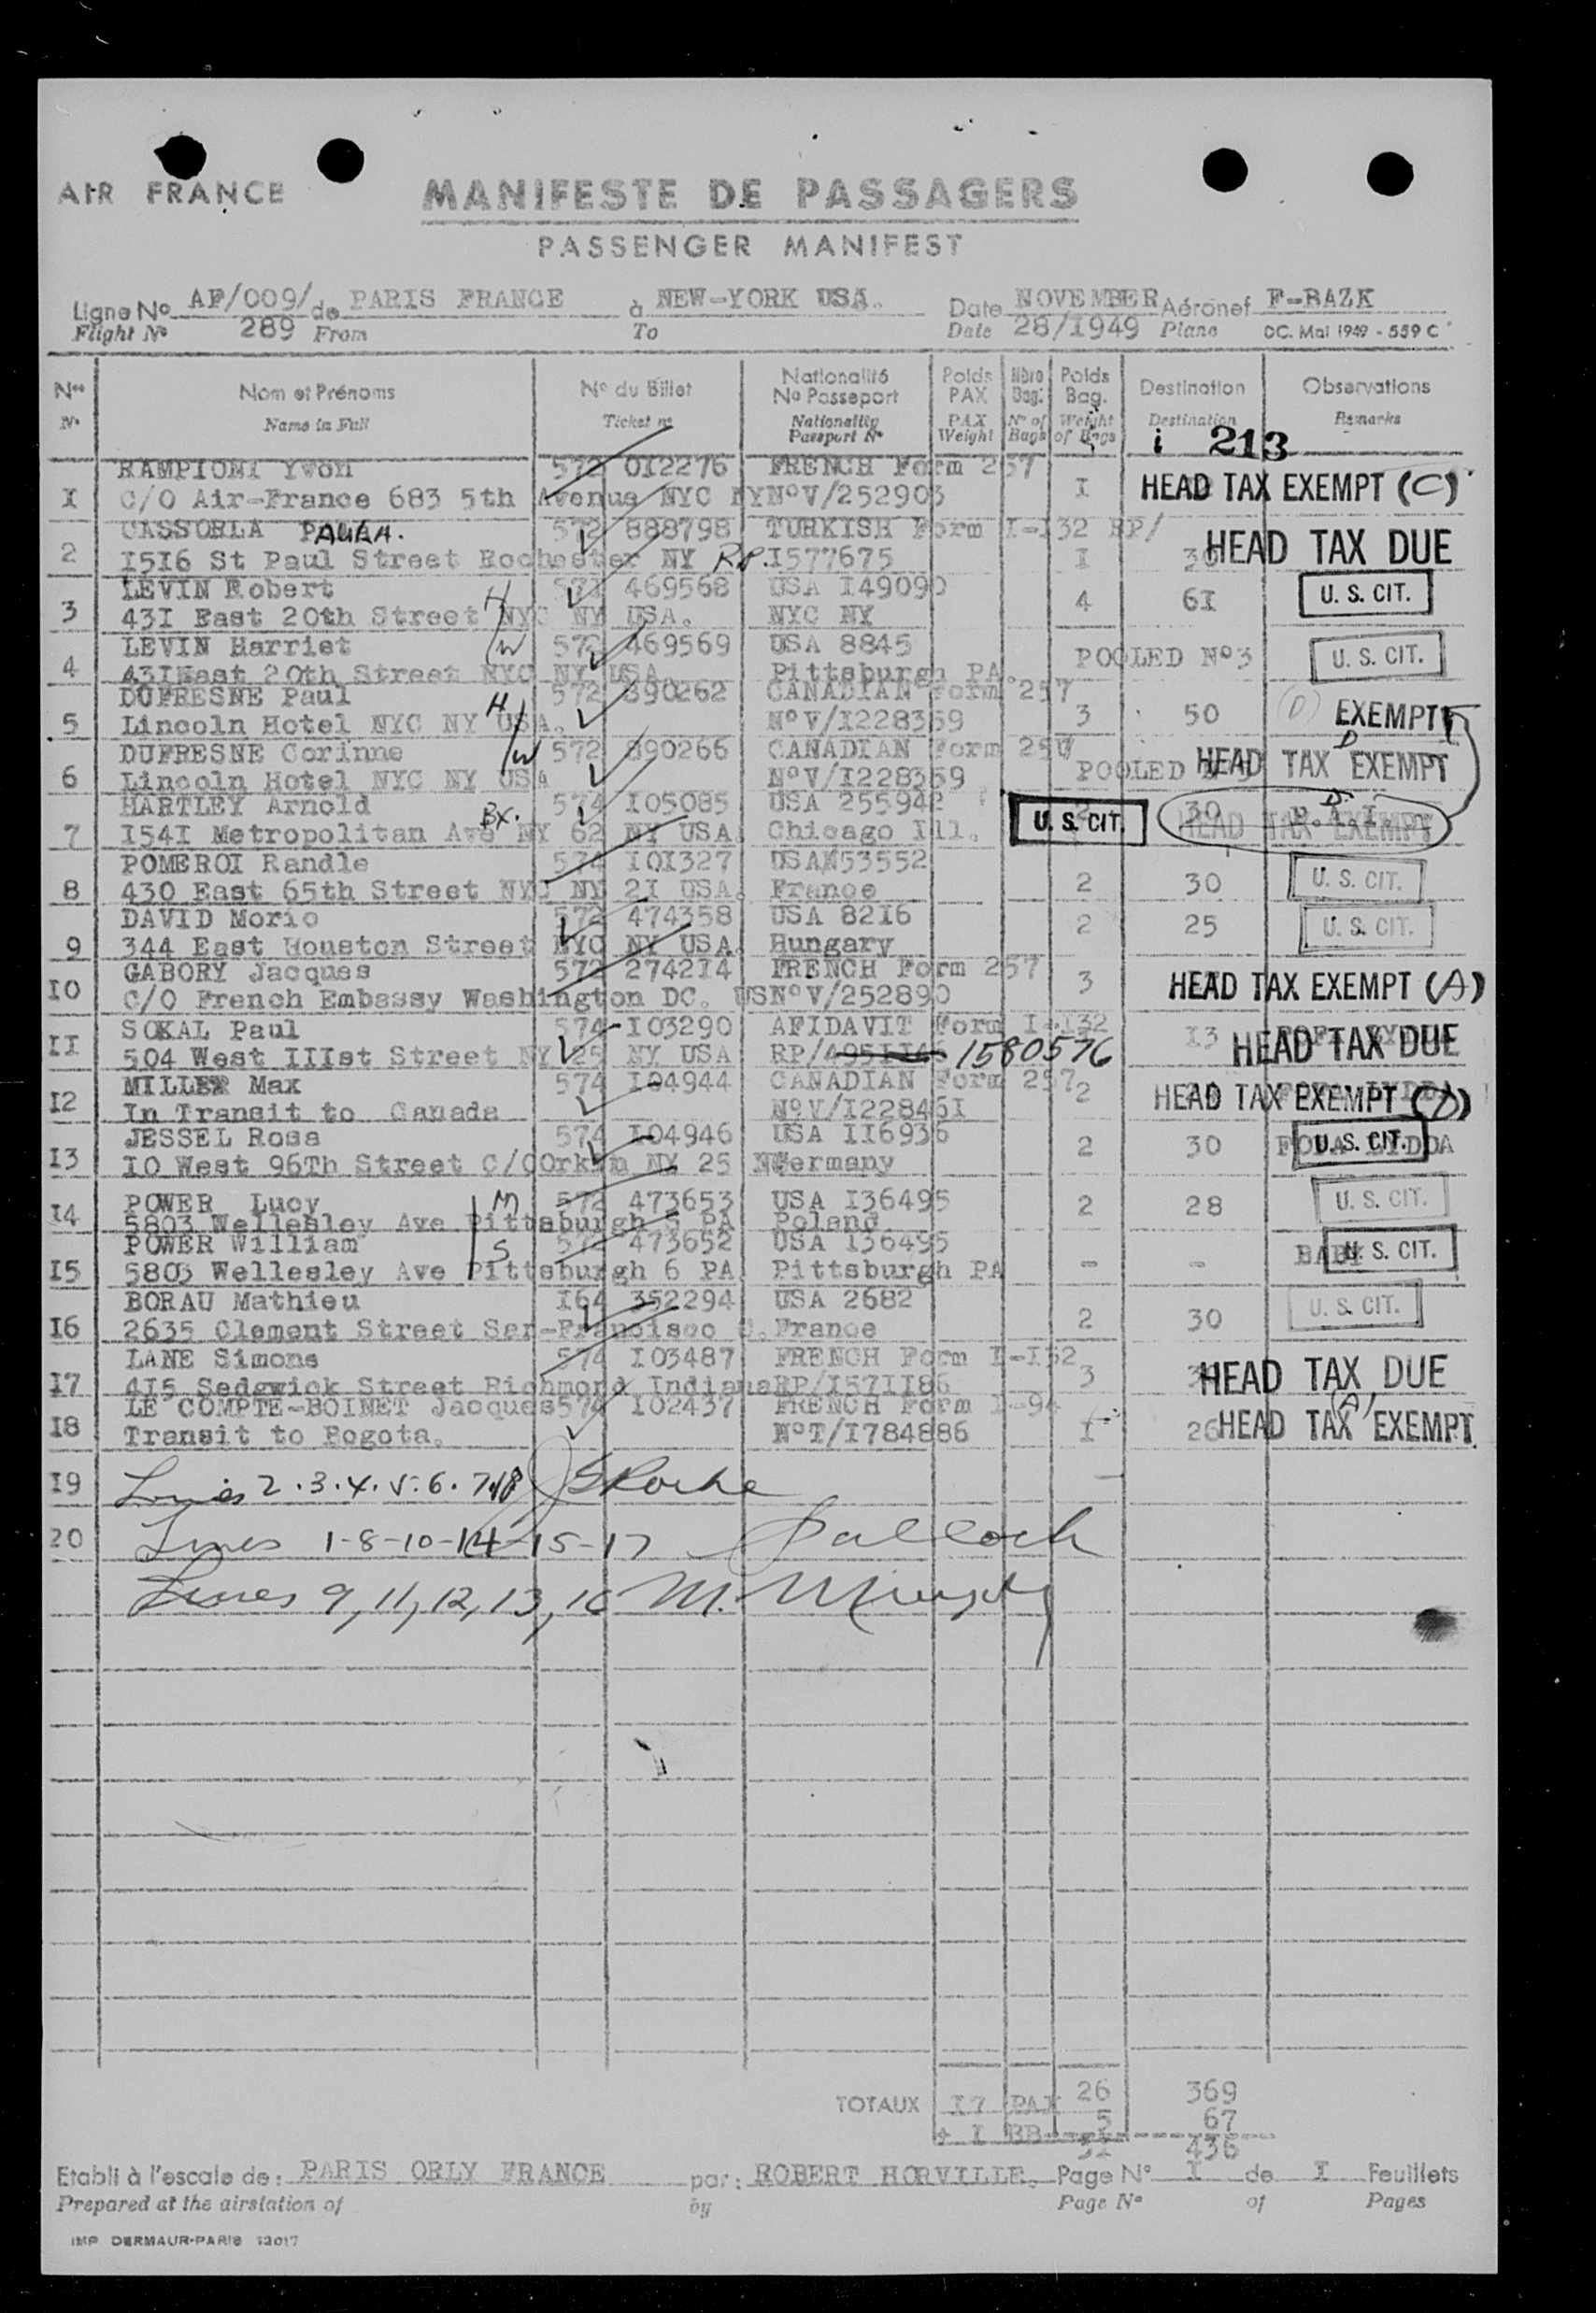 AIR FRANCE
MANIFESTE DE PASSAGERS
PASSENGER MANIFEST
Ligne No AF/009/ de PARIS FRANCE à NEW-YORK USA. Date NOVEMBER Aéronef F-BAZK
Flight No 289 From To Date 28/I949 Plane DC. Mai 1949 - 559 C
Nos Nom et Prénoms No du Billet Nationalité No Passeport Poids PAX Nbre Bag. Poids Bag. Destination Observations
No Name in Full Ticket no Nationality Passport No PAX Weight No of Bags Weight of Bags Destination Remarks
i 213
RAMPIONI Yvon 572 0I2276 FRENCH Form 257
I C/O Air-France 683 5th Avenue NYC NY NoV/252903 I HEAD TAX EXEMPT (C)
CASSORLA PAULA. 572 888798 TURKISH Form I-I32 RP/
2 I5I6 St Paul Street Rochester NY RP. I577675 I HEAD TAX DUE
LEVIN Robert 571 469568 USA I49090
3 43I East 20th Street NYC NY USA. NYC NY 4 6I U. S. CIT.
H
LEVIN Harriet 572 469569 USA 8845
4 43IEast 20th Street NYC NY USA Pittsburgh PA. POOLED No3 U. S. CIT.
W
DUFRESNE Paul 572 890262 CANADIAN Form 257
5 Lincoln Hotel NYC NY USA. NoV/I228369 3 50 (D) EXEMPT
H
DUFRESNE Corinne 572 890266 CANADIAN Form 257
6 Lincoln Hotel NYC NY USA NoV/I228369 POOLED HEAD TAX EXEMPT
W D
HARTLEY Arnold 574 I05085 USA 255942
7 I54I Metropolitan Ave NY 62 NY USA Chicago Ill. 2 U. S. CIT. 30 HEAD TAX EXEMPT
BX. D
POMEROI Randle 574 I0I327 USAN53552
8 430 East 65th Street NYC NY 2I USA. France 2 30 U. S. CIT.
DAVID Moric 572 474358 USA 82I6
9 344 East Houston Street NYC NY USA. Hungary 2 25 U. S. CIT.
GABORY Jacques 572 2742I4 FRENCH Form 257
I0 C/O French Embassy Washington DC. USNoV/252890 3 HEAD TAX EXEMPT (A)
SOKAL Paul 574 I03290 AFIDAVIT Form I-I32
II 504 West IIIst Street NY 25 NY USA RP/ 1580576 I3 HEAD TAX DUE
MILLER Max 574 I04944 CANADIAN Form 257
I2 In Transit to Canada NoV/I22846I 2 HEAD TAX EXEMPT (D)
JESSEL Rosa 574 I04946 USA II6936
I3 I0 West 96Th Street C/OOrkin NY 25 NY Germany 2 30 U. S. CIT.
POWER Lucy 572 473653 USA I36495
I4 5803 Wellesley Ave Pittsburgh 6 PA Poland 2 28 U. S. CIT.
M
POWER William 572 473652 USA I36495
I5 5803 Wellesley Ave Pittsburgh 6 PA Pittsburgh PA - - BABY U. S. CIT.
S
BORAU Mathieu I64 352294 USA 2682
I6 2635 Clement Street San-Francisco France 2 30 U. S. CIT.
LANE Simone 574 I03487 FRENCH Form I-I32
I7 4I5 Sedgwick Street Richmond Indiana RP/I57II86 3 HEAD TAX DUE
LE COMPTE-BOINET Jacques 574 I02437 FRENCH Form I-94
I8 Transit to Bogota. NoT/I784886 I 26 HEAD TAX EXEMPT
(A)
I9 Lines 2.3.4.5.6.7.18
20 Lines 1-8-10-14-15-17
Lines 9,11,12,13,16 M. Murphy
TOTAUX I7 PAX 26 369
+ I BB 5 67
3I 436
Etabli à l'escale de: PARIS ORLY FRANCE par: ROBERT HORVILLE. Page No I de I Feuillets
Prepared at the airstation of by Page No of Pages
IMP DERMAUR-PARIS 13017